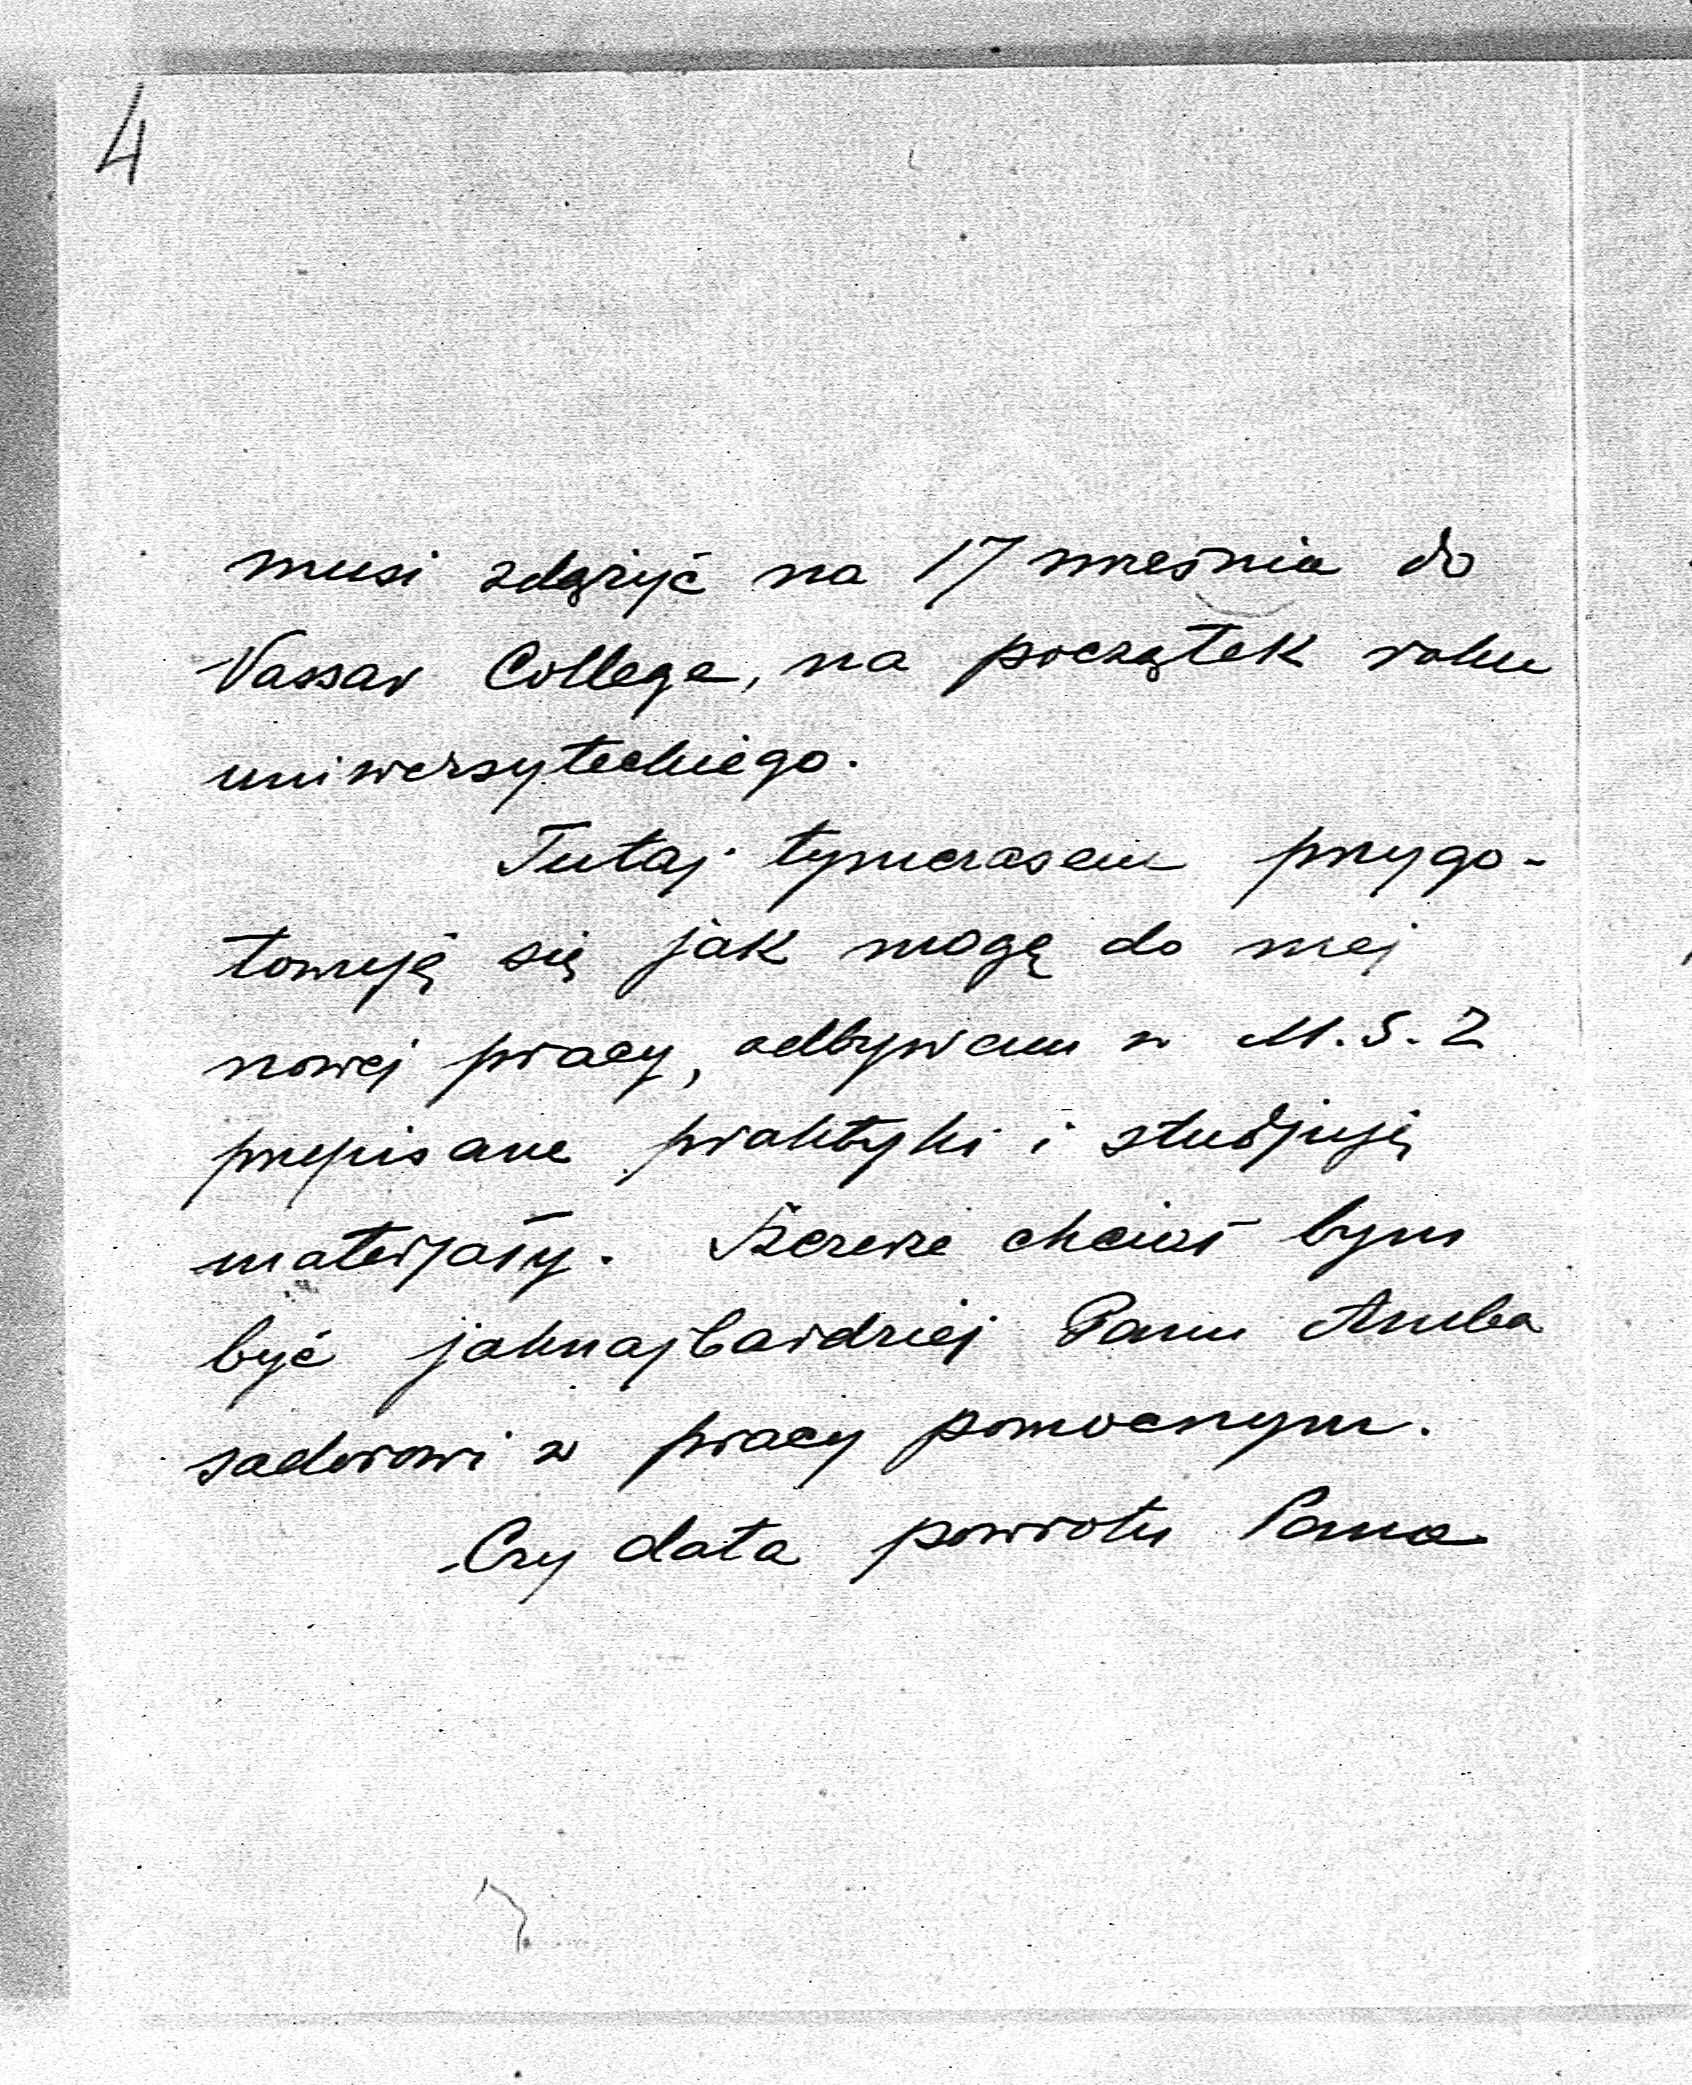 4
musi zdążyć na 17 wreśnia do
Vassar College, na początek roku
uniwersyteckiego.
Tutaj tymczasem przygo-
towuję się jak mogę do mej
nowej pracy, odbywam w M.S.Z
przepisane praktyki i studjuję
materjały. Szczerze chciał bym
być jaknajbardziej Panu Amba
sadorowi w pracy pomocnym.
Czy data powrotu Pana